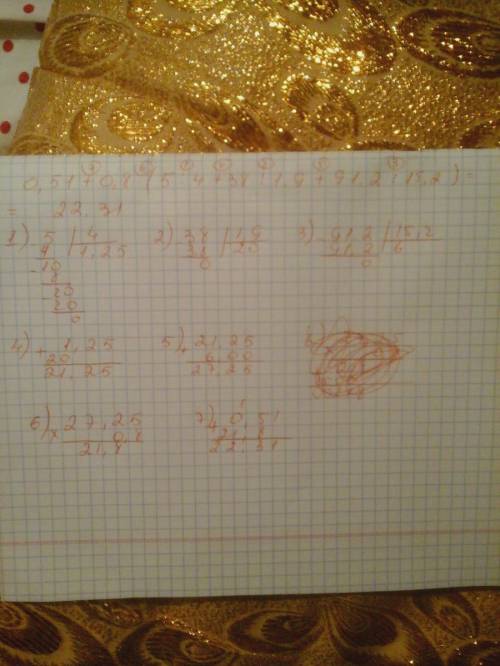 0,51+0,8(5:4+38:1,9+91,2:15,2)=
= 22,31
1) 5 | 4 2) 38 | 1,9 3) 91,2 | 15,2
4 1,25 38 20 91,2 6
10 0 0
8
20
20
0
4) + 1,25 5) + 21,25
20 6,00
21,25 27,25
6) × 27,25 7) + 0,51
0,8 21,8
21,8 22,31